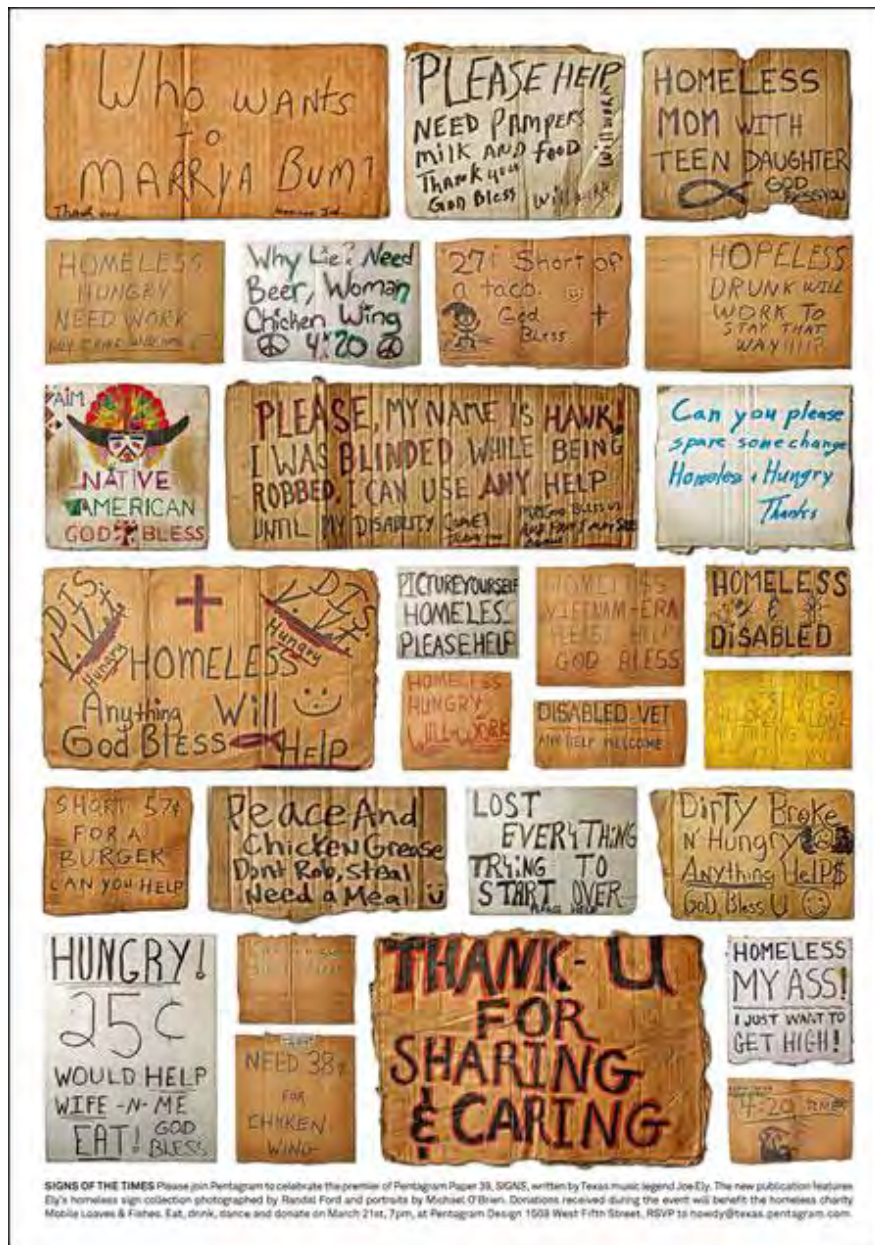 Who WANTS
to
MARRYA BUM?
Thank you
PLEASE HELP
NEED PAMPERS
MILK AND FOOD
Thank you
God Bless
Will Work
HOMELESS
MOM WITH
TEEN DAUGHTER
GOD
BLESS YOU
HOMELESS
HUNGRY
NEED WORK
Why Lie? Need
Beer, Woman
Chicken Wing
4:20
27¢ Short of
a taco.
God
BLess
HOPELESS
DRUNK WILL
WORK TO
STAY THAT
WAY!!!!?
AIM
NATIVE
AMERICAN
GOD BLESS
PLEASE, MY NAME IS HAWK!
I WAS BLINDED WHILE BEING
ROBBED. I CAN USE ANY HELP
UNTIL MY DISABILITY COMES
Can you please
spare some change
Homeless & Hungry
Thanks
DIS.
V.Vet.
Hungry
DIS.
V.Vet.
Hungry
HOMELESS
Anything Will
God BLess HELP
PICTURE YOURSELF
HOMELESS
PLEASE HELP
HOMELESS
VIETNAM-ERA
PLEASE HELP
GOD BLESS
HOMELESS
&
DiSABLED
HOMELESS
HUNGRY
WILL-WORK
DISABLED VET
ANY HELP WELCOME
SHORT 57¢
FOR A
BURGER
CAN YOU HELP
Peace And
Chicken Grease
Dont Rob, Steal
Need a Meal
LOST
EVERYTHING
TRYING TO
START OVER
DirTy Broke
N' Hungry
Anything HelP$
GoD BLess U
HUNGRY!
25¢
WOULD HELP
WIFE -N- ME
EAT! GOD
BLESS
NEED 38¢
FOR
CHICKEN
WING
THANK-U
FOR
SHARING
& CARING
HOMELESS
MY ASS!
I JUST WANT TO
GET HIGH!
4:20
SIGNS OF THE TIMES Please join Pentagram to celebrate the premier of Pentagram Paper 39, SIGNS, written by Texas music legend Joe Ely. The new publication features
Ely's homeless sign collection photographed by Randal Ford and portraits by Michael O'Brien. Donations received during the event will benefit the homeless charity
Mobile Loaves & Fishes. Eat, drink, dance and donate on March 21st, 7pm, at Pentagram Design 1508 West Fifth Street. RSVP to howdy@texas.pentagram.com.